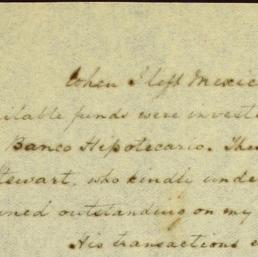 When I left Mexic
ilable funds were investe
Banco Hipotecario. The
tewart, who kindly unde
ined outstanding on my
His transactions